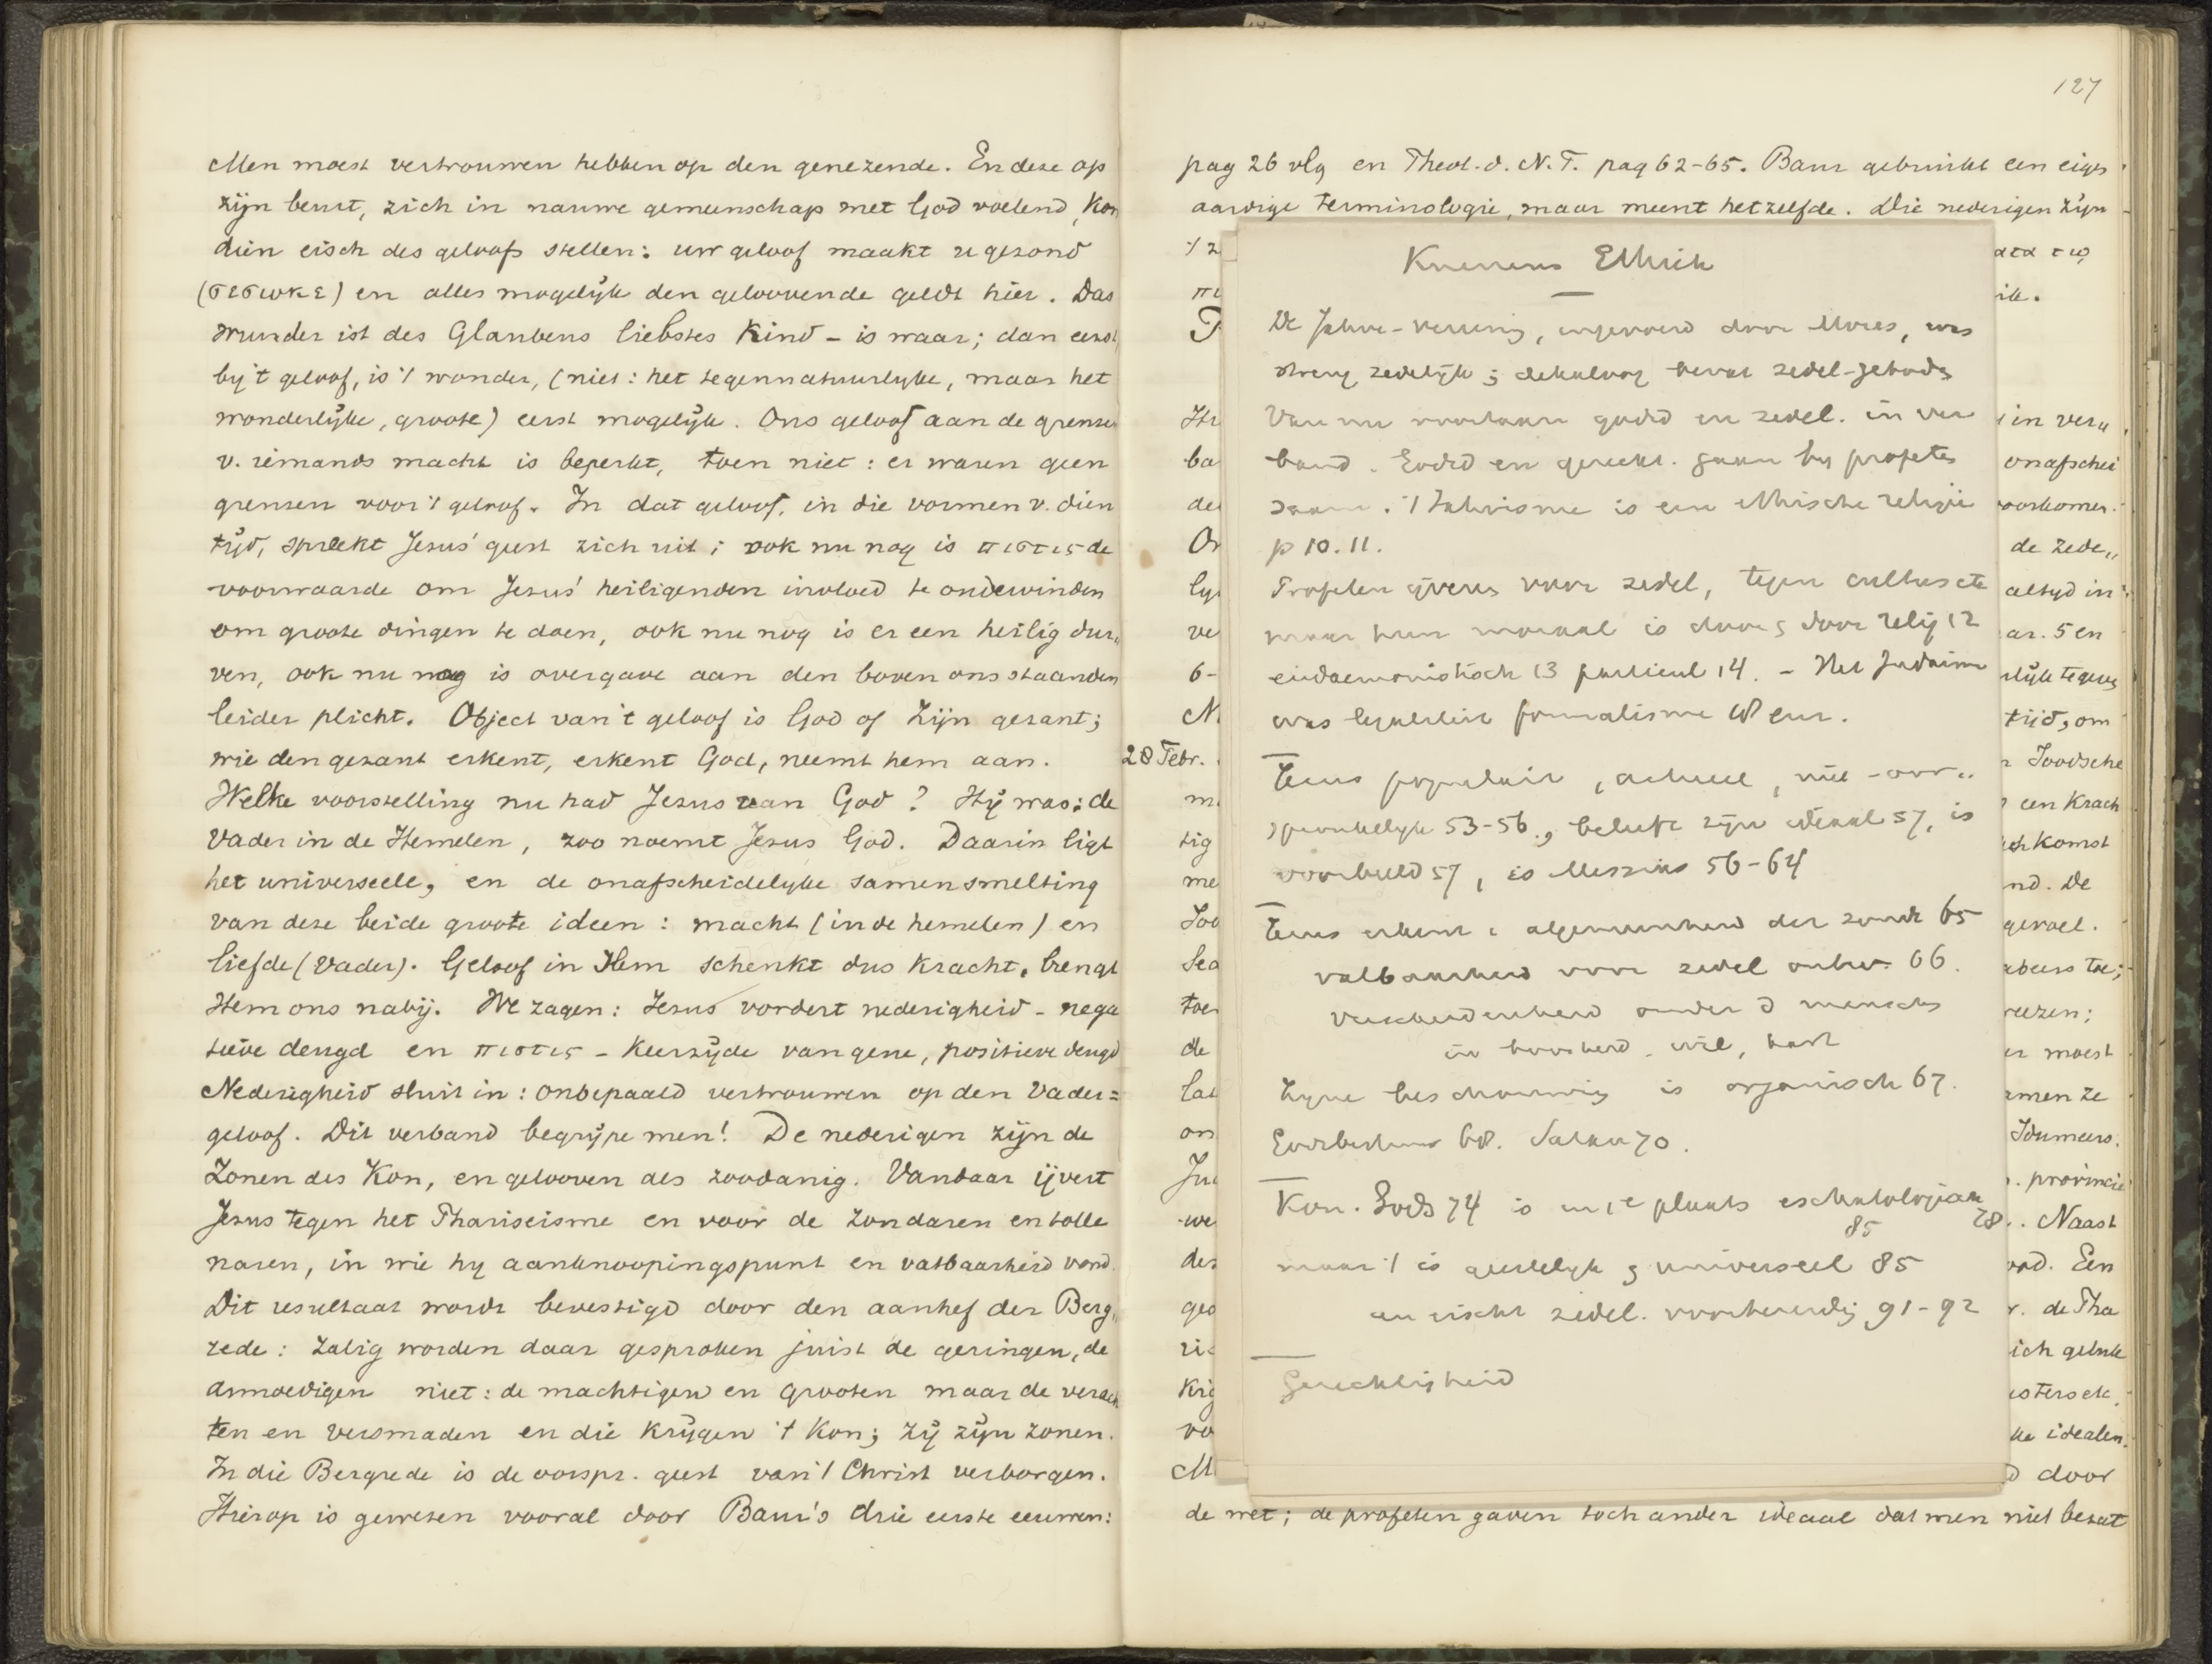 Men moest vertrouwen hebben op den genezende. En deze op
zijn beurt, zich in nauwe gemeenschap met God voelend, kon
dien eisch des geloofs stellen: uw geloof maakt u gezond
(σεσωκε) en alles mogelijk den geloovende geldt hier. Das
Wunder ist des Glaubens liebstes Kind - is waar; dan eerst,
by 't geloof, is 't wonder, (niet: het tegennatuurlyke, maar het
wonderlijke, groote) eerst mogelijk. Ons geloof aan de grenzen
v. iemands macht is beperkt, toen niet: er waren geen
grenzen voor 't geloof. In dat geloof, in die vormen v. dien
tijd, spreekt Jezus' geest zich uit; ook nu nog is πιστις de
voorwaarde om Jezus' heiligenden invloed te ondervinden
om groote dingen te doen, ook nu nog is er een heilig dur„
ven, ook nu nog is overgave aan den boven ons staanden
leider plicht. Object van 't geloof is God of Zijn gezant;
wie den gezant erkent, erkent God, neemt hem aan.
Welke voorstelling nu had Jezus van God? Hij was: de
Vader in de Hemelen, zoo noemt Jezus God. Daarin ligt
het universeele, en de onafscheidelyke samensmelting
van deze beide groote ideen: macht (in de hemelen) en
liefde (Vader). Geloof in Hem schenkt dus kracht, brengt
Hem ons nabij. We zagen: Jezus vordert nederigheid - nega
tieve deugd en πιστις - keerzijde van gene, positieve deugd
Nederigheid sluit in: onbepaald vertrouwen op den Vader=
geloof. Dit verband begrijpe men! De nederigen zijn de
Zonen des Kon, en gelooven als zoodanig. Vandaar ijvert
Jezus tegen het Phariseisme en voor de zondaren en tolle
naren, in wie hy aanknoopingspunt en vatbaarheid vond.
Dit resultaat wordt bevestigd door den aanhef der Berg„
rede: Zalig worden daar gesproken juist de geringen, de
ammoedigen niet: de machtigen en grooten maar de verach
ten en versmaden en die krijgen 't Kon; zij zijn zonen.
In die Bergrede is de oorspr. geest van 't Christ verborgen.
Hierop is gewezen vooral door Baur's drie eerste eeuwen:
127
pag 26 vlg en Theol. d. N.T. pag 62-65. Baur gebruikt een eigen
aardige terminologie, maar meent hetzelfde. Die nederigen zijn
28 Febr.
Kuenens Ethiek
De Jahve-vereering, ingevoerd door Mozes, was
streng zedelijk; dekaloog bevat zedel-geboden
Van nu voortaan godsd en zedel. in ver
band. Godsd en gerecht. gaan by profeten
saam. 't Jahvisme is een ethische religie
p 10. 11.
Profeten ijveren voor zedel, tegen cultus etc
maar hun moraal is door relig 12
eudaemonistisch 13 particul 14. - Het Judaisme
was formalisme
Jezus populair, actueel, niet-oor„
spronkelyk 53-56, beleefde zijn ideaal 57, is
voorbeeld 57, is Messias 56-64
Jezus erkent algemeenheid der zonde 65
vatbaarheid voor zedel ontw. 66.
verscheidenheid onder d menschen
in boosheid, wil, hart
Zyne beschouwing is organisch 67.
Godsbestuur 68. Satan 70.
Kon. Gods 74 is in 1e plaats eschatologisch 78
85
maar 't is geestelyk & universeel 85
en eischt zedel. voorbereiding 91-92
Gerechtigheid
in veru
onafschei
voorkomen.
de zede„
altyd in
ar. 5 en
tijd, om
Joodsche
een Krach
komst
nd. De
gevoel.
moest
men ze
Idumeers.
provincie
Naast
Een
de Pha
idealen.
door
de wet; de profeten gaven toch ander ideaal dat men niet bezat